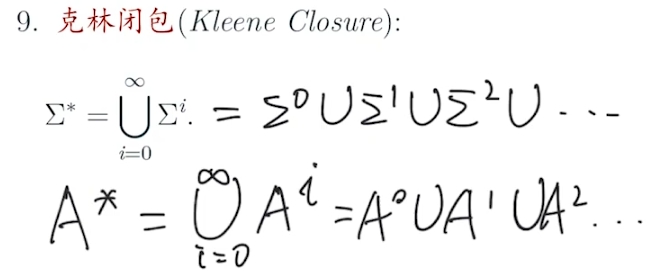 9. 克林闭包(Kleene Closure):
Σ* = ⋃_{i=0}^{∞} Σ^i. = Σ^0 ∪ Σ^1 ∪ Σ^2 ∪ ...
A* = ⋃_{i=0}^{∞} A^i = A^0 ∪ A^1 ∪ A^2 ...